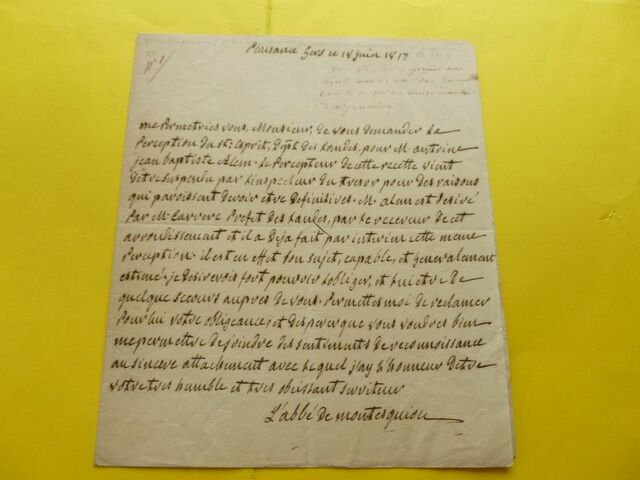 n° 1
Plaisance Gers ce 18 juin 1817
me Permettries vous, Monsieur, de vous demander la
Perception du St. Esprit, dépt des Landes, pour M. antoine
jean baptiste Alem. Le Percepteur de cette recette vient
detre suspendu par L'inspecteur du tresor pour des raisons
qui paroissent devoir etre definitives. M. alem est desiré
Par M. Carrere Prefet des Landes, par Le receveur de cet
arrondissement et il a deja fait par interim cette meme
Perception. il est en effet bon sujet, capable, et generalement
estimé. je desirerois fort pouvoir L'obliger, et lui etre de
quelque secours aupres de vous. Permettes moi de reclamer
Pour lui votre obligeance, et desperer que vous voudres bien
me permettre de joindre des sentiments de reconnoissance
au sincere attachement avec Le quel j'ay L'honneur detre
votre tres humble et tres obeissant serviteur
L'abbé de montesquiou